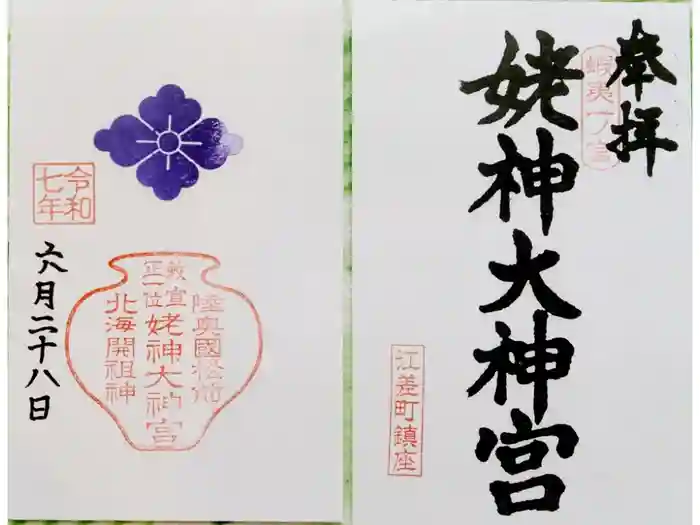 奉拝
蝦夷一ノ宮
姥神大神宮
江差町鎮座
令和
七年
陸奥國松前
敕宣
正一位
姥神大神宮
北海開祖神
六月二十八日